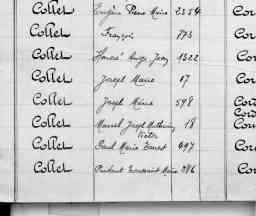 Collet Eugène Pierre Marie 2254
Collet François 773
Collet Honoré Ange Jean 1322
Collet Joseph Marie 17
Collet Joseph Marie 598
Collet Marcel Joseph Mathurin 18
Victor
Collet Paul Marie Ernest 697
Collet Prudent Toussaint Marie 286